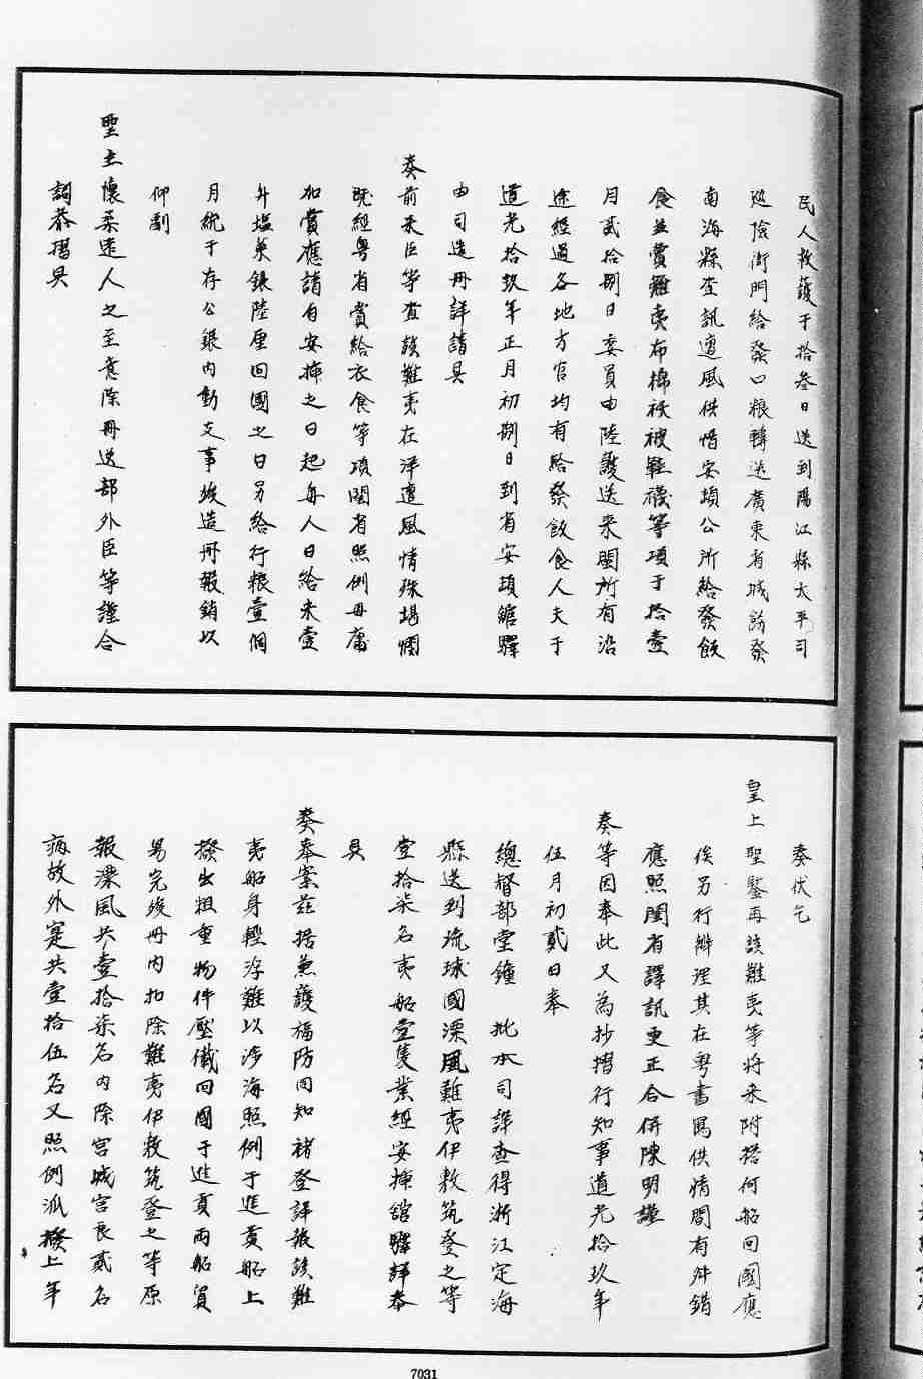 民人救護于拾叁日送到陽江縣太平司
巡險衙門給發口粮轉送廣東省城飭發
南海縣查訊遭風供情安頓公所給發飯
食並賞難夷布棉袄被鞋襪等項于拾壹
月貳拾捌日委員由陸護送来閩所有沿
途經過各地方官均有給發飲食人夫于
道光拾玖年正月初捌日到省安頓館驛
由司造冊詳請具
奏前来臣等查該難夷在洋遭風情殊堪憫
既經粤省賞給衣食等項閩省照例毋庸
加賞應請自安揷之日起每人日給米壹
升塩菜銀陸厘回國之日另給行粮壹個
月統于存公銀内動支事竣造冊報銷以
仰副
聖主懷柔逺人之至意除冊送部外臣等謹合
詞恭摺具
奏伏乞
皇上聖鑒再該難夷等將来附搭何船回國應
俟另行辦理其在粤書寫供情間有舛錯
應照閩省譯訊更正合併陳明謹
奏等因奉此又為抄摺行知事道光拾玖年
伍月初貳日奉
總督部堂鐘　批本司詳查得浙江定海
縣送到琉球國漂風難夷伊敷筑登之等
壹拾柒名夷船壹隻業經安揷館驛詳奉
具
奏奉案茲据兼護福防同知褚登詳報該難
夷船身輕浮難以涉海照例于進貢船上
撥出粗重物件壓儎回國于進貢兩船貿
易完竣冊内扣除難夷伊敷筑登之等原
報漂風共壹拾柒名内除宫城宫良貳名
病故外寔共壹拾伍名又照例派撥上年
7031